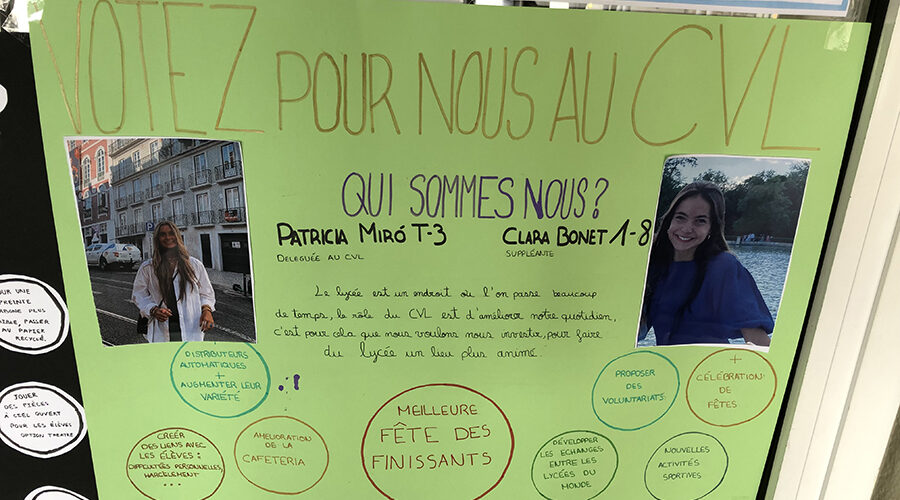 VOTEZ POUR NOUS AU CVL
QUI SOMMES NOUS?
PATRICIA MIRÓ T-3
DELEGUÉE AU CVL
CLARA BONET 1-8
SUPPLÉANTE
Le lycée est un endroit où l'on passe beaucoup
de temps, le rôle du CVL est d'améliorer notre quotidien,
c'est pour cela que nous voulons nous investir, pour faire
du lycée un lieu plus animé.
DISTRIBUTEURS
AUTOMATIQUES
+
AUGMENTER LEUR
VARIÉTÉ
PROPOSER
DES
VOLUNTARIATS
+
CÉLÉBRATION
DE
FÊTES
MEILLEURE
FÊTE DES
FINISSANTS
CRÉER
DES LIENS AVEC
LES ÉLÈVES:
DIFFICULTÉS PERSONNELLES,
HARCÈLEMENT
...
AMELIORATION
DE LA
CAFETERIA
DÉVELOPPER
LES ECHANGES
ENTRE LES
LYCÉES DU
MONDE
NOUVELLES
ACTIVITÉS
SPORTIVES
POUR UNE
PLUS
PASSER
AU PAPIER
RECYCLÉ.
JOUER
DES PIÈCES
À CIEL OUVERT
POUR LES ÉLÈVES
OPTION THEATRE